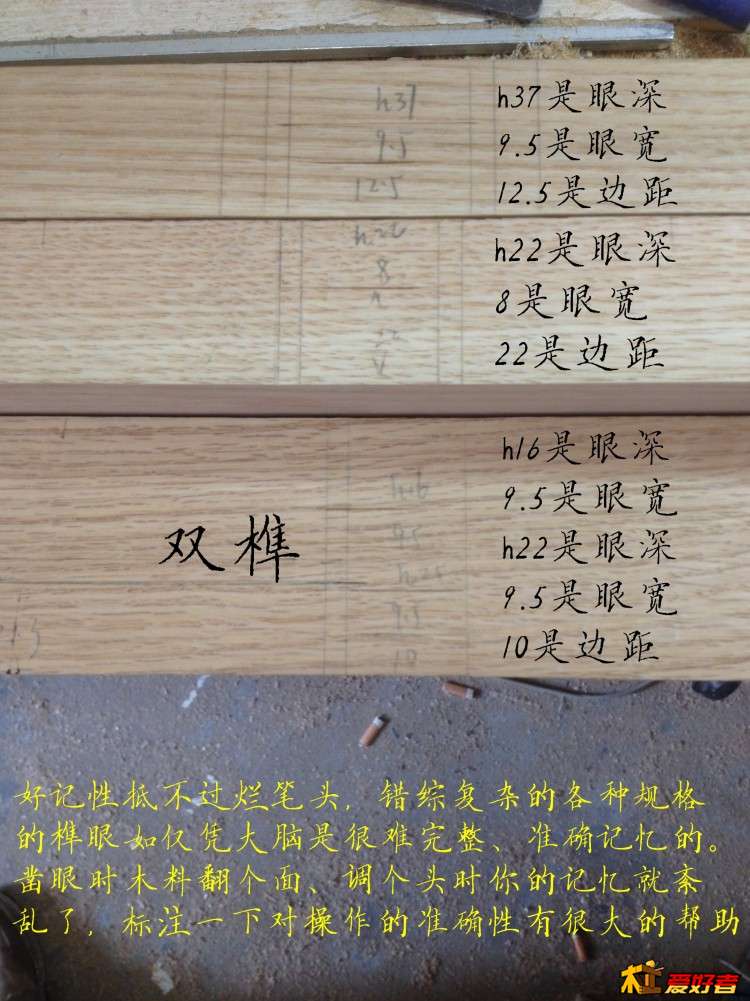 h37
h37是眼深
9.5
9.5是眼宽
12.5
12.5是边距
h22
h22是眼深
8
8是眼宽
22
22是边距
h16是眼深
h16
9.5是眼宽
9.5
h22是眼深
h22
9.5是眼宽
9.5
10是边距
10
双榫
好记性抵不过烂笔头，错综复杂的各种规格
的榫眼如仅凭大脑是很难完整、准确记忆的。
凿眼时木料翻个面、调个头时你的记忆就紊
乱了，标注一下对操作的准确性有很大的帮助
木工爱好者